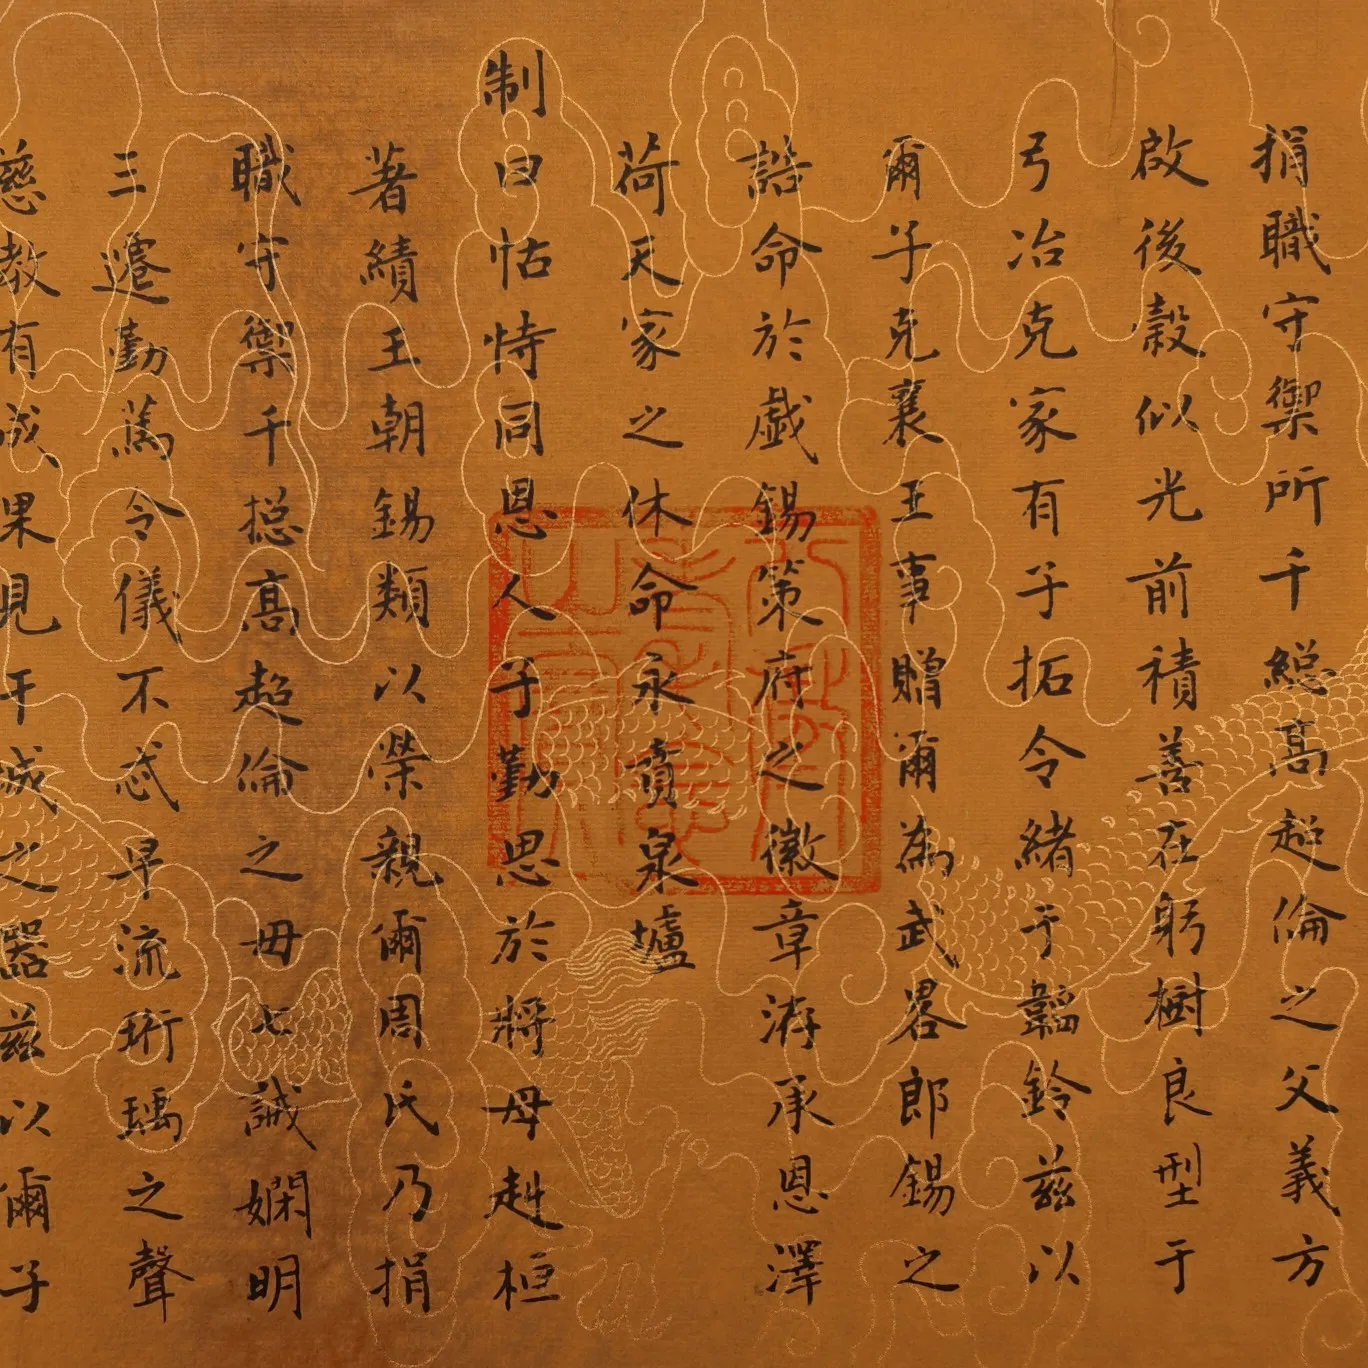 捐職守禦所千総高超倫之父義方
啟後穀似光前積善在躬樹良型于
弓冶克家有子拓令緒于韜鈐茲以
爾子克襄王事贈爾為武畧郎錫之
誥命於戱錫策府之徽章洊承恩澤
荷天家之休命永賁泉壚
制曰怙恃同恩人子勤思於將母赳桓
著績王朝錫類以榮親爾周氏乃捐
職守禦千摠高超倫之母七誡嫻明
三遷勤篤令儀不忒早流珩瑀之聲
慈教有成果見干城之器茲以爾子